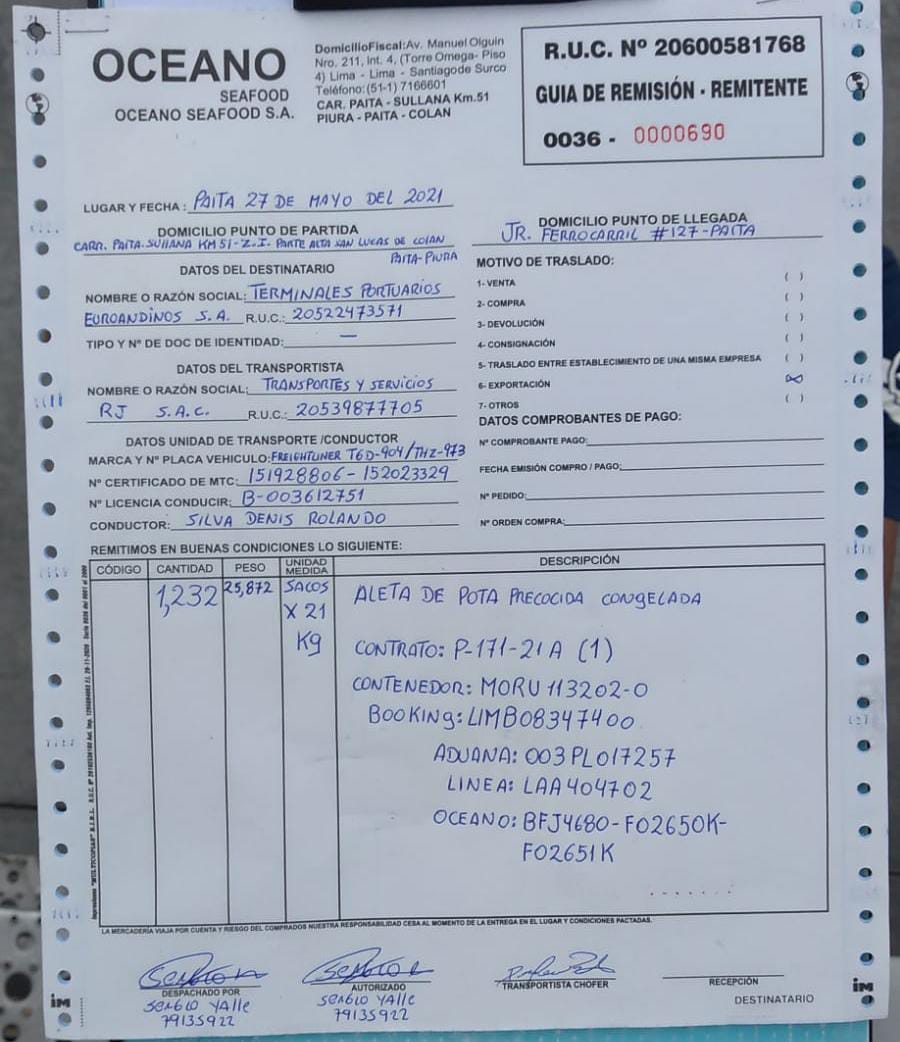 OCEANO
SEAFOOD
OCEANO SEAFOOD S.A.
DomicilioFiscal:Av. Manuel Olguin
Nro. 211, Int. 4, (Torre Omega- Piso
4) Lima - Lima - Santiagode Surco
Teléfono:(51-1) 7166601
CAR. PAITA - SULLANA Km.51
PIURA - PAITA - COLAN
R.U.C. Nº 20600581768
GUIA DE REMISIÓN - REMITENTE
0036 - 0000690
LUGAR Y FECHA : PAITA 27 DE MAYO DEL 2021
DOMICILIO PUNTO DE PARTIDA
CARR. PAITA-SULLANA KM 51-Z.I. PARTE ALTA SAN LUCAS DE COLAN
PAITA-PIURA
DOMICILIO PUNTO DE LLEGADA
JR. FERROCARRIL #127-PAITA
DATOS DEL DESTINATARIO
NOMBRE O RAZÓN SOCIAL: TERMINALES PORTUARIOS
EUROANDINOS S.A. R.U.C.: 20522473571
TIPO Y Nº DE DOC DE IDENTIDAD: —
DATOS DEL TRANSPORTISTA
NOMBRE O RAZÓN SOCIAL: TRANSPORTES Y SERVICIOS
RJ S.A.C. R.U.C.: 20539877705
DATOS UNIDAD DE TRANSPORTE /CONDUCTOR
MARCA Y Nº PLACA VEHICULO: FREIGHTLINER T6D-904/THZ-973
Nº CERTIFICADO DE MTC: 151928806-152023329
Nº LICENCIA CONDUCIR: B-003612751
CONDUCTOR: SILVA DENIS ROLANDO
MOTIVO DE TRASLADO:
1- VENTA ( )
2- COMPRA ( )
3- DEVOLUCIÓN ( )
4- CONSIGNACIÓN ( )
5- TRASLADO ENTRE ESTABLECIMIENTO DE UNA MISMA EMPRESA ( )
6- EXPORTACIÓN (X)
7- OTROS ( )
DATOS COMPROBANTES DE PAGO:
Nº COMPROBANTE PAGO:
FECHA EMISIÓN COMPRO / PAGO:
Nº PEDIDO:
Nº ORDEN COMPRA:
REMITIMOS EN BUENAS CONDICIONES LO SIGUIENTE:
CÓDIGO CANTIDAD PESO UNIDAD MEDIDA DESCRIPCIÓN
1,232 25,872 SACOS ALETA DE POTA PRECOCIDA CONGELADA
X 21
Kg CONTRATO: P-171-21A (1)
CONTENEDOR: MORU 113202-0
BOOKING: LIMB08347400
ADUANA: 003PL017257
LINEA: LAA404702
OCEANO: BFJ4680-F02650K-
F02651K
LA MERCADERÍA VIAJA POR CUENTA Y RIESGO DEL COMPRADOS NUESTRA RESPONSABILIDAD CESA AL MOMENTO DE LA ENTREGA EN EL LUGAR Y CONDICIONES PACTADAS.
DESPACHADO POR
SERGIO YALLE
79135922
AUTORIZADO
SERGIO YALLE
79135922
TRANSPORTISTA CHOFER
RECEPCIÓN
DESTINATARIO
im
im